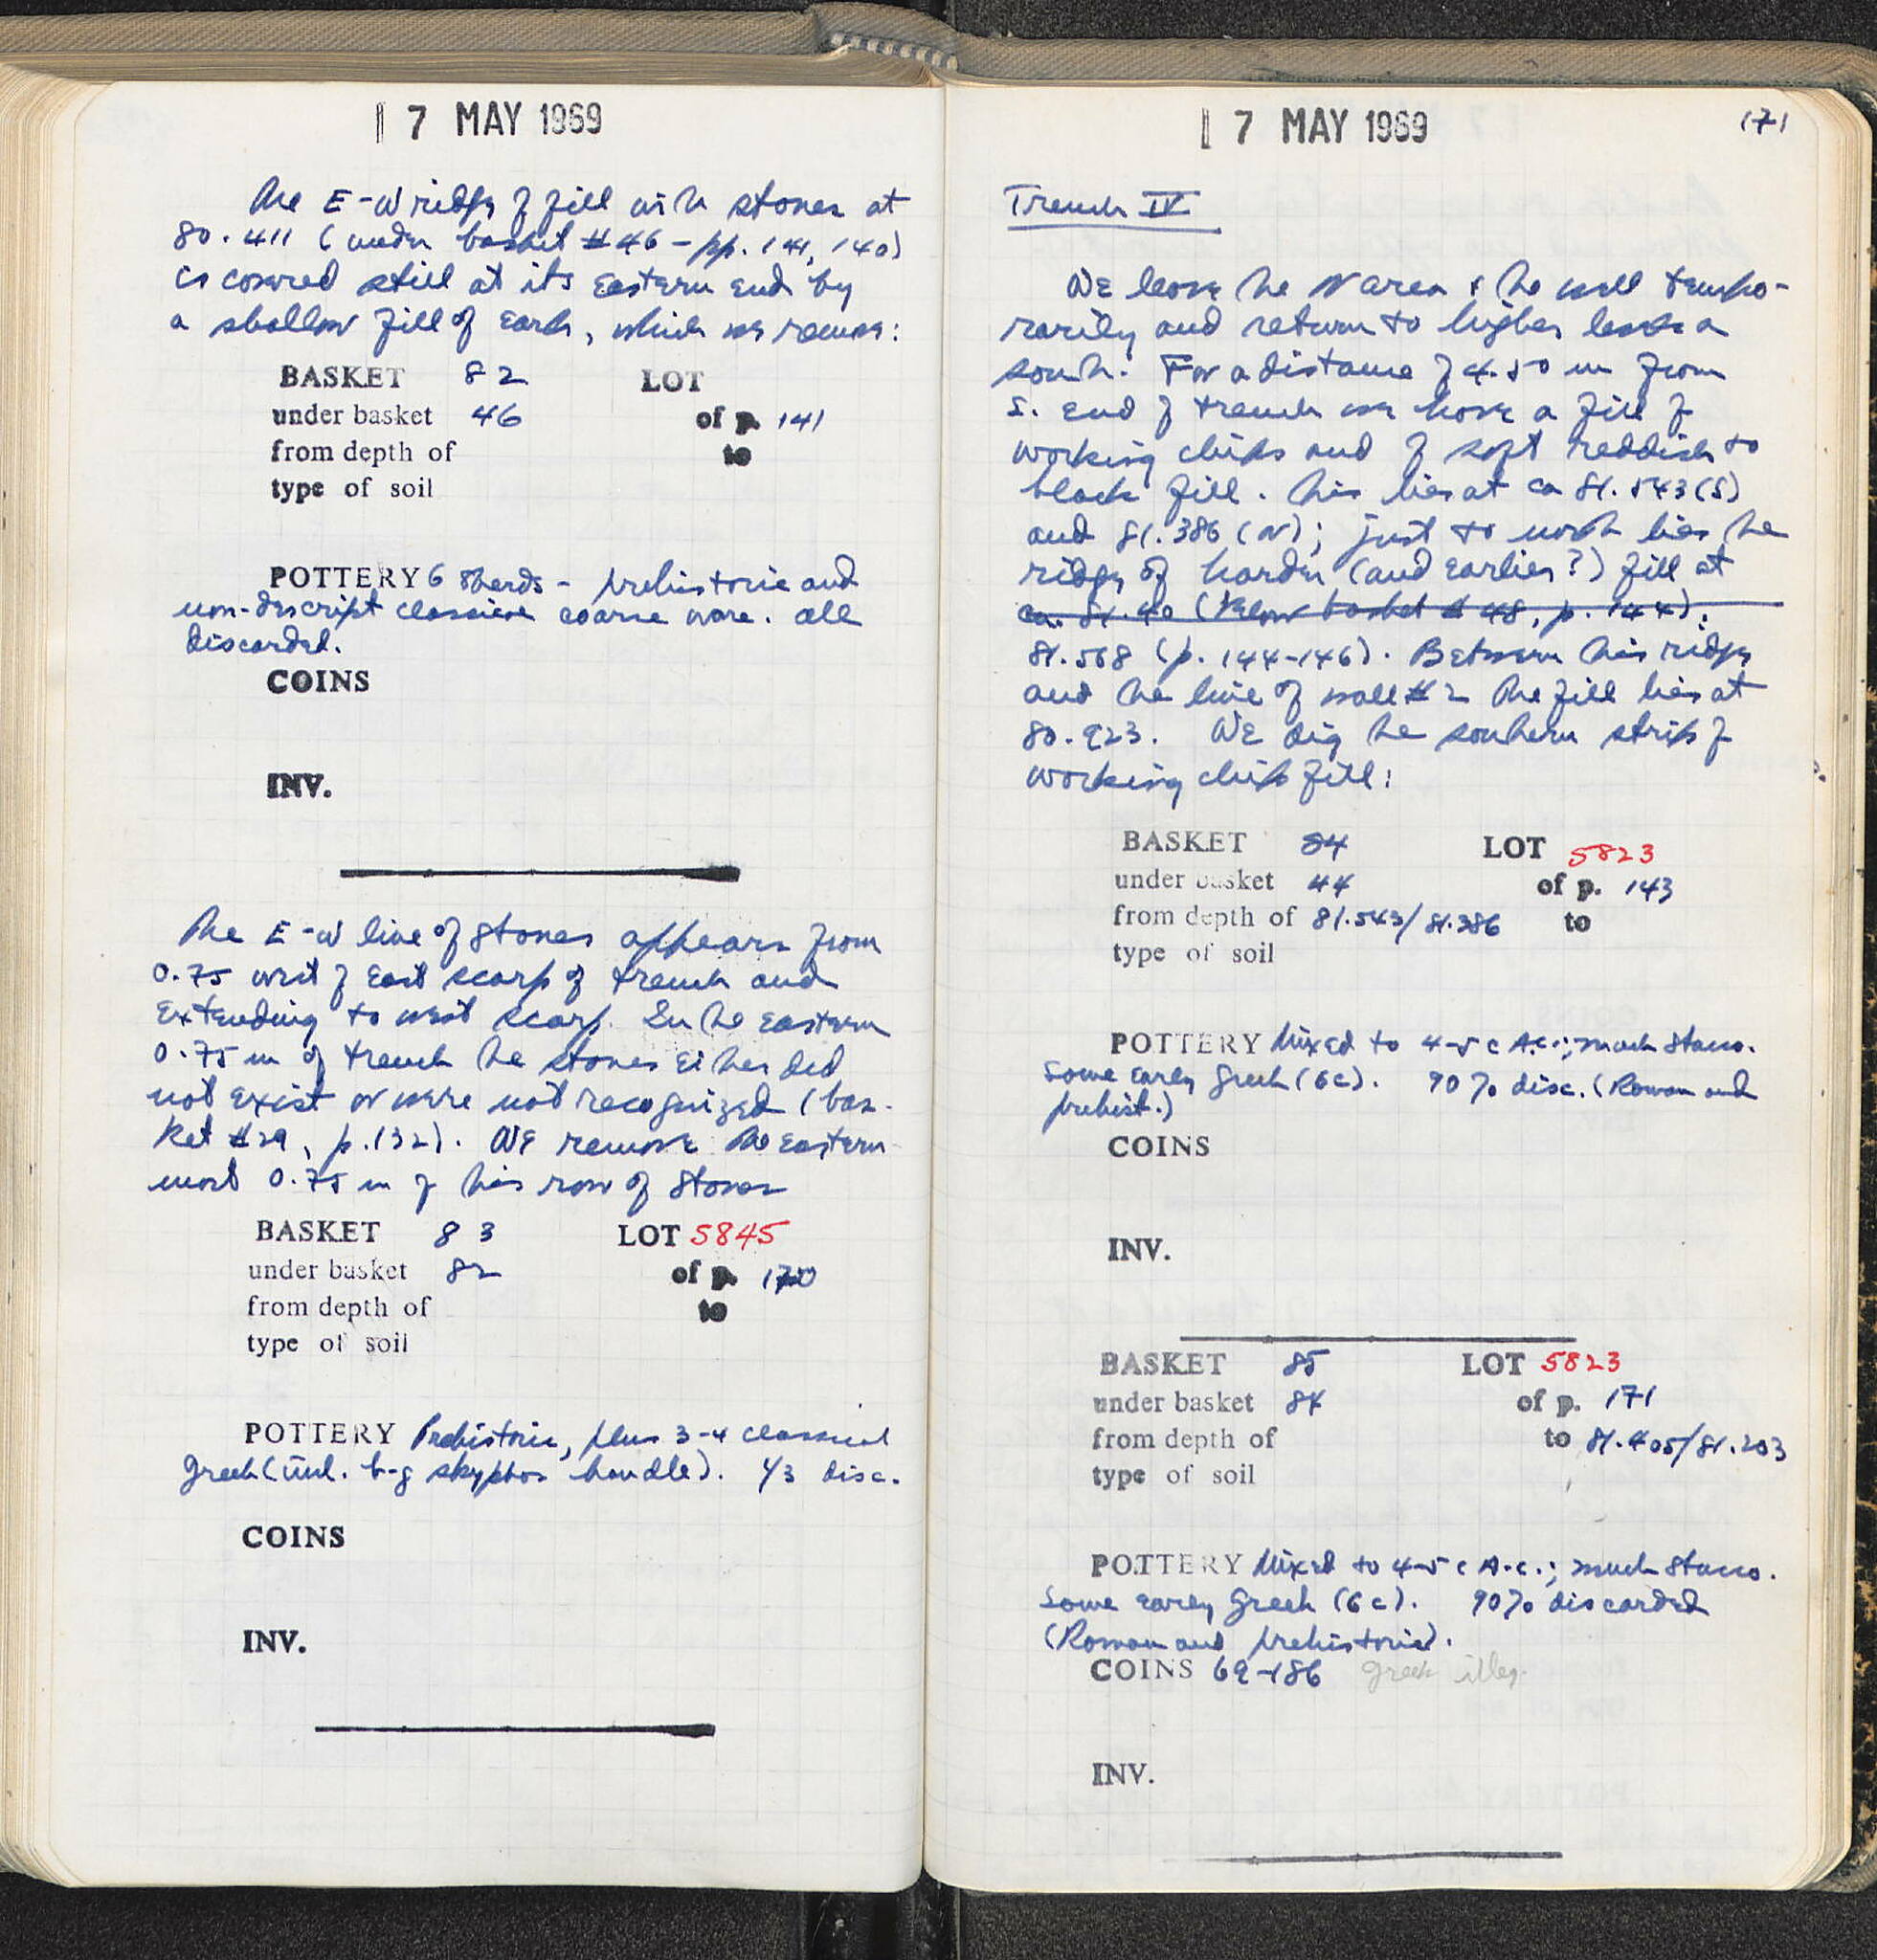 17 MAY 1969
The E-W ridge of fill with stones at
80.411 (under basket #46 - pp. 141, 140)
is covered still at its eastern end by
a shallow fill of earth, which we remove:
BASKET 82 LOT
under basket 46 of p. 141
from depth of to
type of soil
POTTERY 6 sherds - prehistoric and
non-descript classical coarse ware. All
discarded.
COINS
INV.
The E-W line of stones appears from
0.75 west of East scarp of trench and
extending to west scarp. In the eastern
0.75 m of trench the stones either did
not exist or were not recognized (bas-
ket #29, p. 132). We remove the eastern-
most 0.75 m of this row of stones
BASKET 83 LOT 5845
under basket 82 of p. 170
from depth of to
type of soil
POTTERY Prehistoric, plus 3-4 classical
Greek (incl. b-g skyphos handle). 1/3 disc.
COINS
INV.
17 MAY 1969 171
Trench IV
We leave the N area & the well tempo-
rarily and return to higher levels
south. For a distance of 4.50 m from
S. end of trench we have a fill of
working chips and of soft reddish to
black fill. This lies at ca 81.543 (S)
and 81.386 (N); just to north lies the
ridge of harder (and earlier?) fill at
ca. 81.40 (below basket #48, p. 144);
81.568 (p. 144-146). Between this ridge
and the line of wall #2 the fill lies at
80.923. We dig the southern strip of
working chip fill:
BASKET 84 LOT 5823
under basket 44 of p. 143
from depth of 81.543/81.386 to
type of soil
POTTERY Mixed to 4-5 c A.C.; much stucco.
Some early Greek (6c). 90% disc. (Roman and
prehist.)
COINS
INV.
BASKET 85 LOT 5823
under basket 84 of p. 171
from depth of to 81.405/81.203
type of soil
POTTERY Mixed to 4-5 c A.C.; much stucco.
Some early Greek (6c). 90% discarded
(Roman and prehistoric).
COINS 69-186 Greek illeg.
INV.